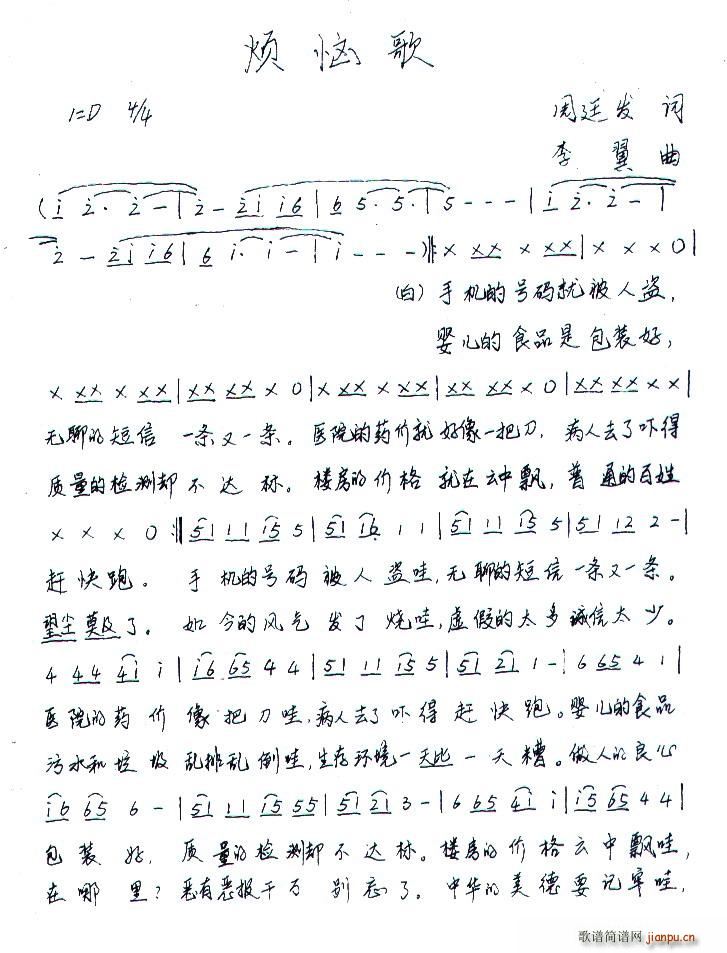 烦恼歌
1=D 4/4 周廷发 词
李翼 曲
(i 2· 2 - | 2 - 2i i6 | 6 5· 5· | 5 - - - | i 2· 2 - |
2 - 2i i6 | 6 i· i - | i - - -)‖: x xx x xx | x x x 0 |
(白) 手机的号码就被人盗,
婴儿的食品是包装好,
x xx x xx | xx xx x 0 | x xx x xx | xx xx x 0 | xx xx x x |
无聊的短信 一条又一条。医院的药价就好像一把刀, 病人去了吓得
质量的检测却不达标。楼房的价格就在云中飘, 普通的百姓
x x x 0 :‖ 51 11 i5 5 | 51 i6 1 1 | 51 11 i5 5 | 51 12 2 - |
赶快跑。 手机的号码被人盗哇, 无聊的短信一条又一条。
望尘莫及了。 如今的风气发了烧哇, 虚假的太多诚信太少。
4 44 4i i | i6 65 4 4 | 51 11 i5 5 | 51 21 1 - | 6 65 4 1 |
医院的药价像把刀哇, 病人去了吓得赶快跑。婴儿的食品
污水和垃圾乱排乱倒哇, 生存环境一天比一天糟。做人的良心
i6 65 6 - | 51 11 i5 55 | 51 21 3 - | 6 65 4i i | i5 65 4 4 |
包装好, 质量的检测却不达标。楼房的价格云中飘哇,
在哪里? 恶有恶报千万别忘了。中华的美德要记牢哇,
歌谱简谱网 jianpu.cn